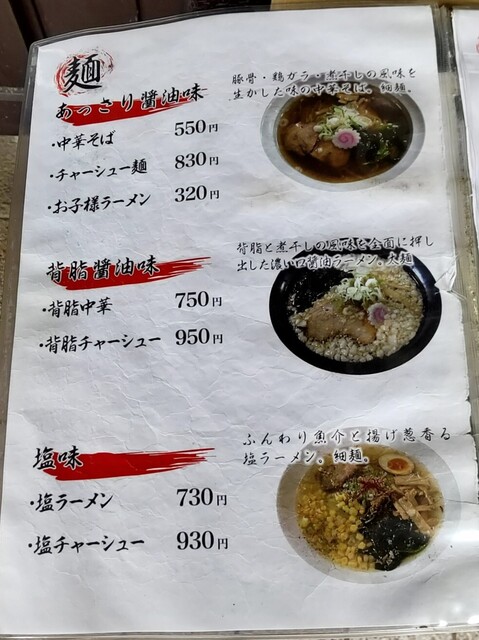 麺
あっさり醤油味
豚骨・鶏ガラ・煮干しの風味を
生かした味の中華そば。細麺。
・中華そば 550円
・チャーシュー麺 830円
・お子様ラーメン 320円
背脂醤油味
背脂と煮干しの風味を全面に押し
出した濃い口醤油ラーメン。太麺
・背脂中華 750円
・背脂チャーシュー 950円
塩味
ふんわり魚介と揚げ葱香る
塩ラーメン。細麺。
・塩ラーメン 730円
・塩チャーシュー 930円